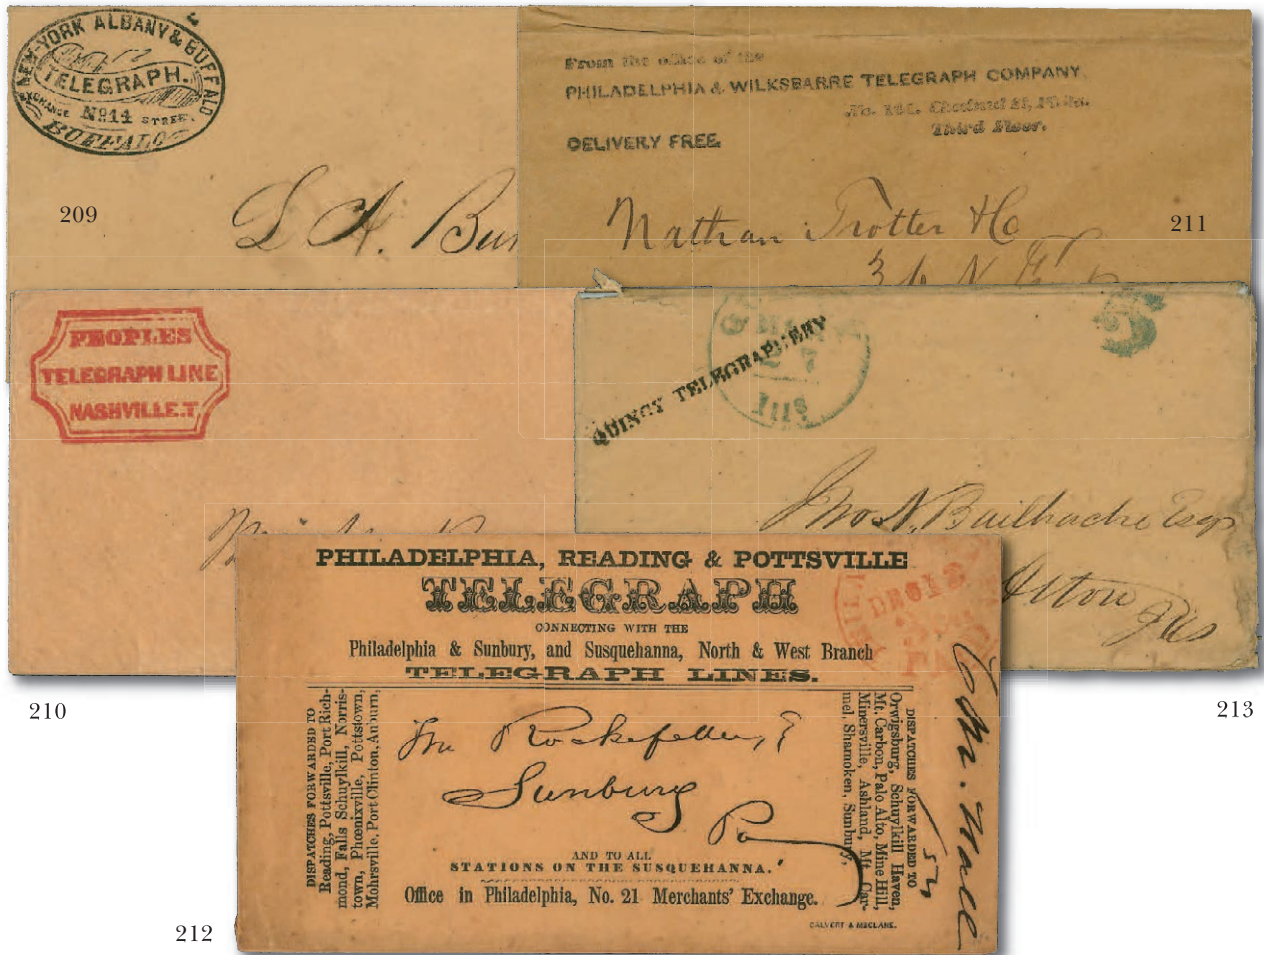 NEW-YORK ALBANY & BUFFALO
TELEGRAPH.
EXCHANGE No. 14 STREET.
BUFFALO
L. A.
209
From the office of the
PHILADELPHIA & WILKSBARRE TELEGRAPH COMPANY,
Chestnut St,
Third Floor.
DELIVERY FREE.
Nathan Trotter & Co
211
PEOPLES
TELEGRAPH LINE
NASHVILLE.T.
210
QUINCY TELEGRAPHERY
7
Ills
5
Jno. N. Bailhache Esqr
Alton
Ills
213
PHILADELPHIA, READING & POTTSVILLE
TELEGRAPH
CONNECTING WITH THE
Philadelphia & Sunbury, and Susquehanna, North & West Branch
TELEGRAPH LINES.
DEC 12
DISPATCHES FORWARDED TO
Reading, Pottsville, Port Rich-
mond, Falls Schuylkill, Norris-
town, Phœnixville, Pottstown,
Mohrsville, Port Clinton, Auburn,
Rockefeller,
Sunbury
Pa
DISPATCHES FORWARDED TO
Orwigsburg, Schuylkill Haven,
Mt. Carbon, Palo Alto, Mine Hill,
Minersville, Ashland, Mt. Car-
mel, Shamoken, Sunbury,
AND TO ALL
STATIONS ON THE SUSQUEHANNA.
Office in Philadelphia, No. 21 Merchants' Exchange.
CALVERT & MCCLANE.
212